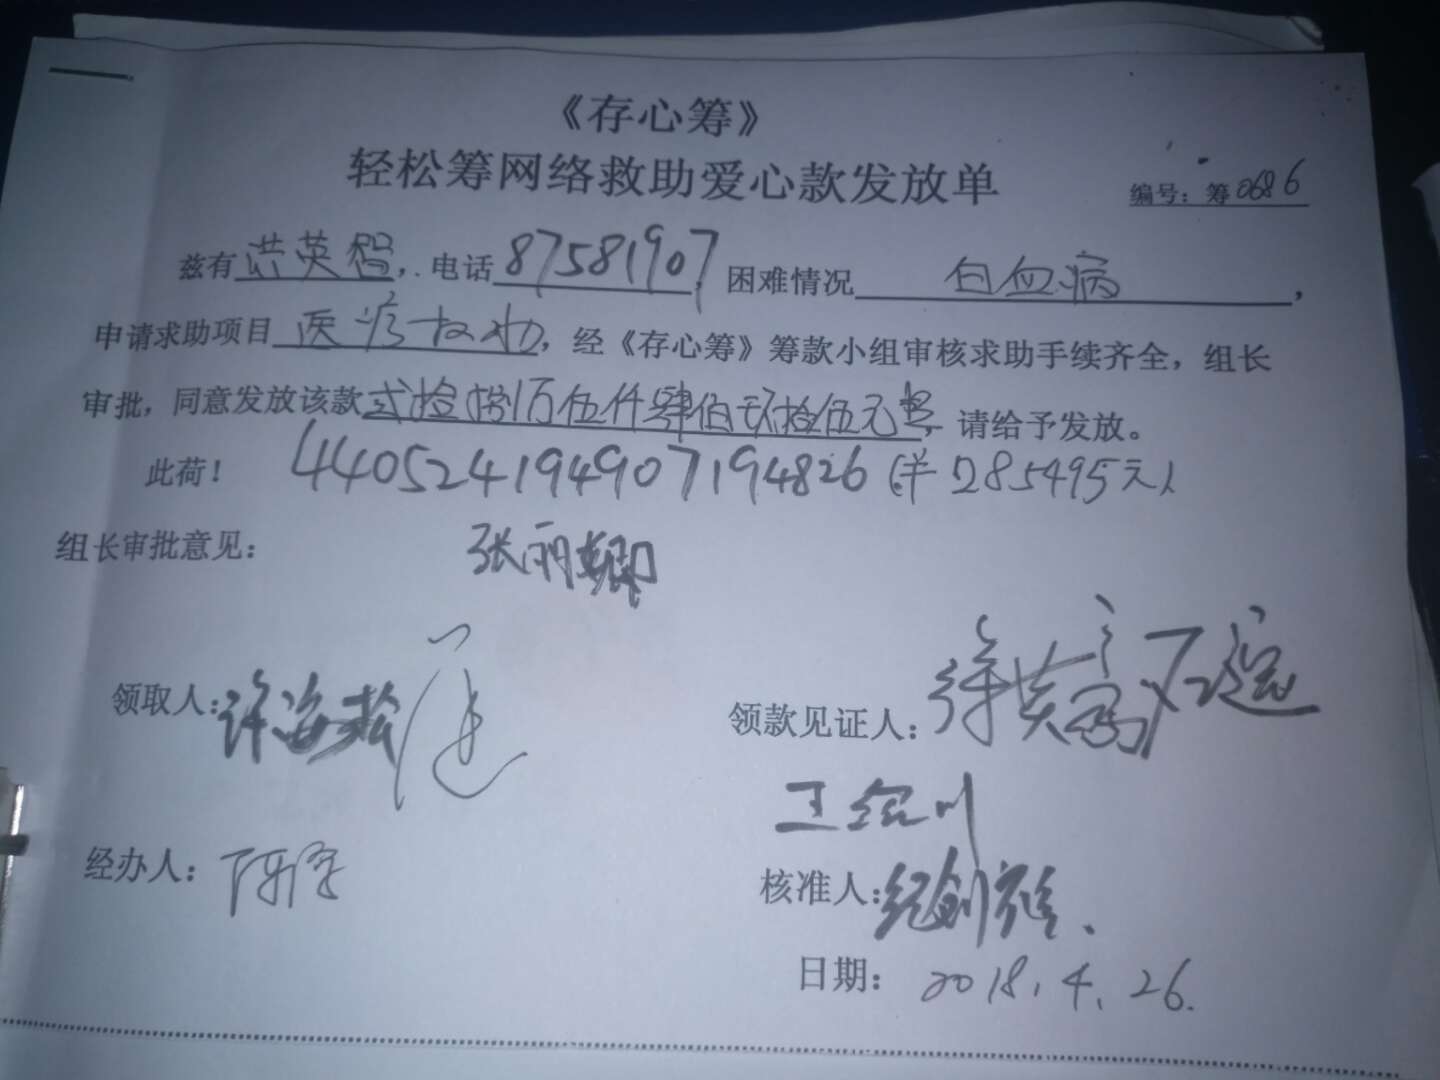 《存心筹》
轻松筹网络救助爱心款发放单
编号：筹0686
兹有洪英智，电话87581907，困难情况白血病，
申请求助项目医疗救助，经《存心筹》筹款小组审核求助手续齐全，组长
审批，同意发放该款贰拾捌万伍仟肆佰玖拾伍元整，请给予发放。
此荷！ 440524194907194826 (¥285495元)
组长审批意见： 张丽卿
领取人：许海松
领款见证人：
王绍川
经办人：
核准人：纪创雄.
日期：2018.4.26.